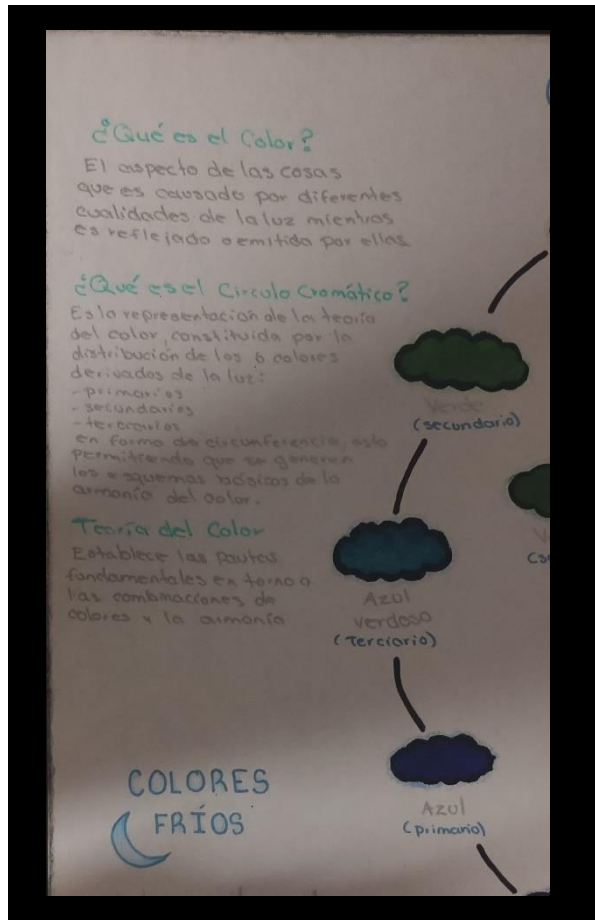 ¿Qué es el Color?
El aspecto de las cosas
que es causado por diferentes
cualidades de la luz mientras
es reflejado o emitida por ellas
¿Qué es el Circulo Cromático?
Es la representación de la teoría
del color, constituida por la
distribución de los 6 colores
derivados de la luz:
-primarios
-secundarios
-terciarios
en forma de circunferencia, esto
permitiendo que se generen
los esquemas básicos de la
armonía del color.
Teoría del Color
Establece las pautas
fundamentales en torno a
las combinaciones de
colores y la armonía
Verde
(secundario)
Azul
verdoso
(Terciario)
Azul
(primario)
COLORES
FRÍOS